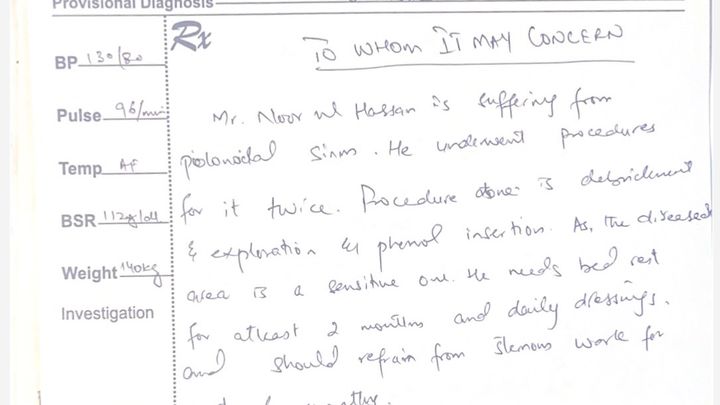 Provisional Diagnosis
Rx
TO WHOM IT MAY CONCERN
BP 130/80
Pulse 96/min
Temp AF
BSR 112g/dl
Weight 140kg
Investigation
Mr. Noor ul Hassan is suffering from
pilonidal sinus. He underwent procedures
for it twice. Procedure done is debridement
& exploration & phenol insertion. As, the diseased
area is a sensitive one. He needs bed rest
for atleast 2 months and daily dressings.
and should refrain from work for